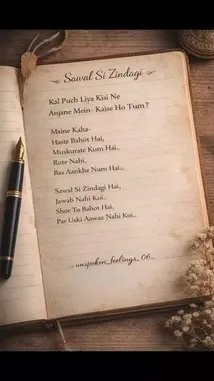 Sawal Si Zindagi
Kal Puch Liya Kisi Ne
Anjane Mein- Kaise Ho Tum?
Maine Kaha-
Haste Bahot Hai,
Muskurate Kum Hai..
Rote Nahi,
Bas Aankhe Num Hai..
Sawal Si Zindagi Hai,
Jawab Nahi Koi..
Shor To Bahot Hai,
Par Uski Aawaz Nahi Koi..
_unspoken_feelings_06_